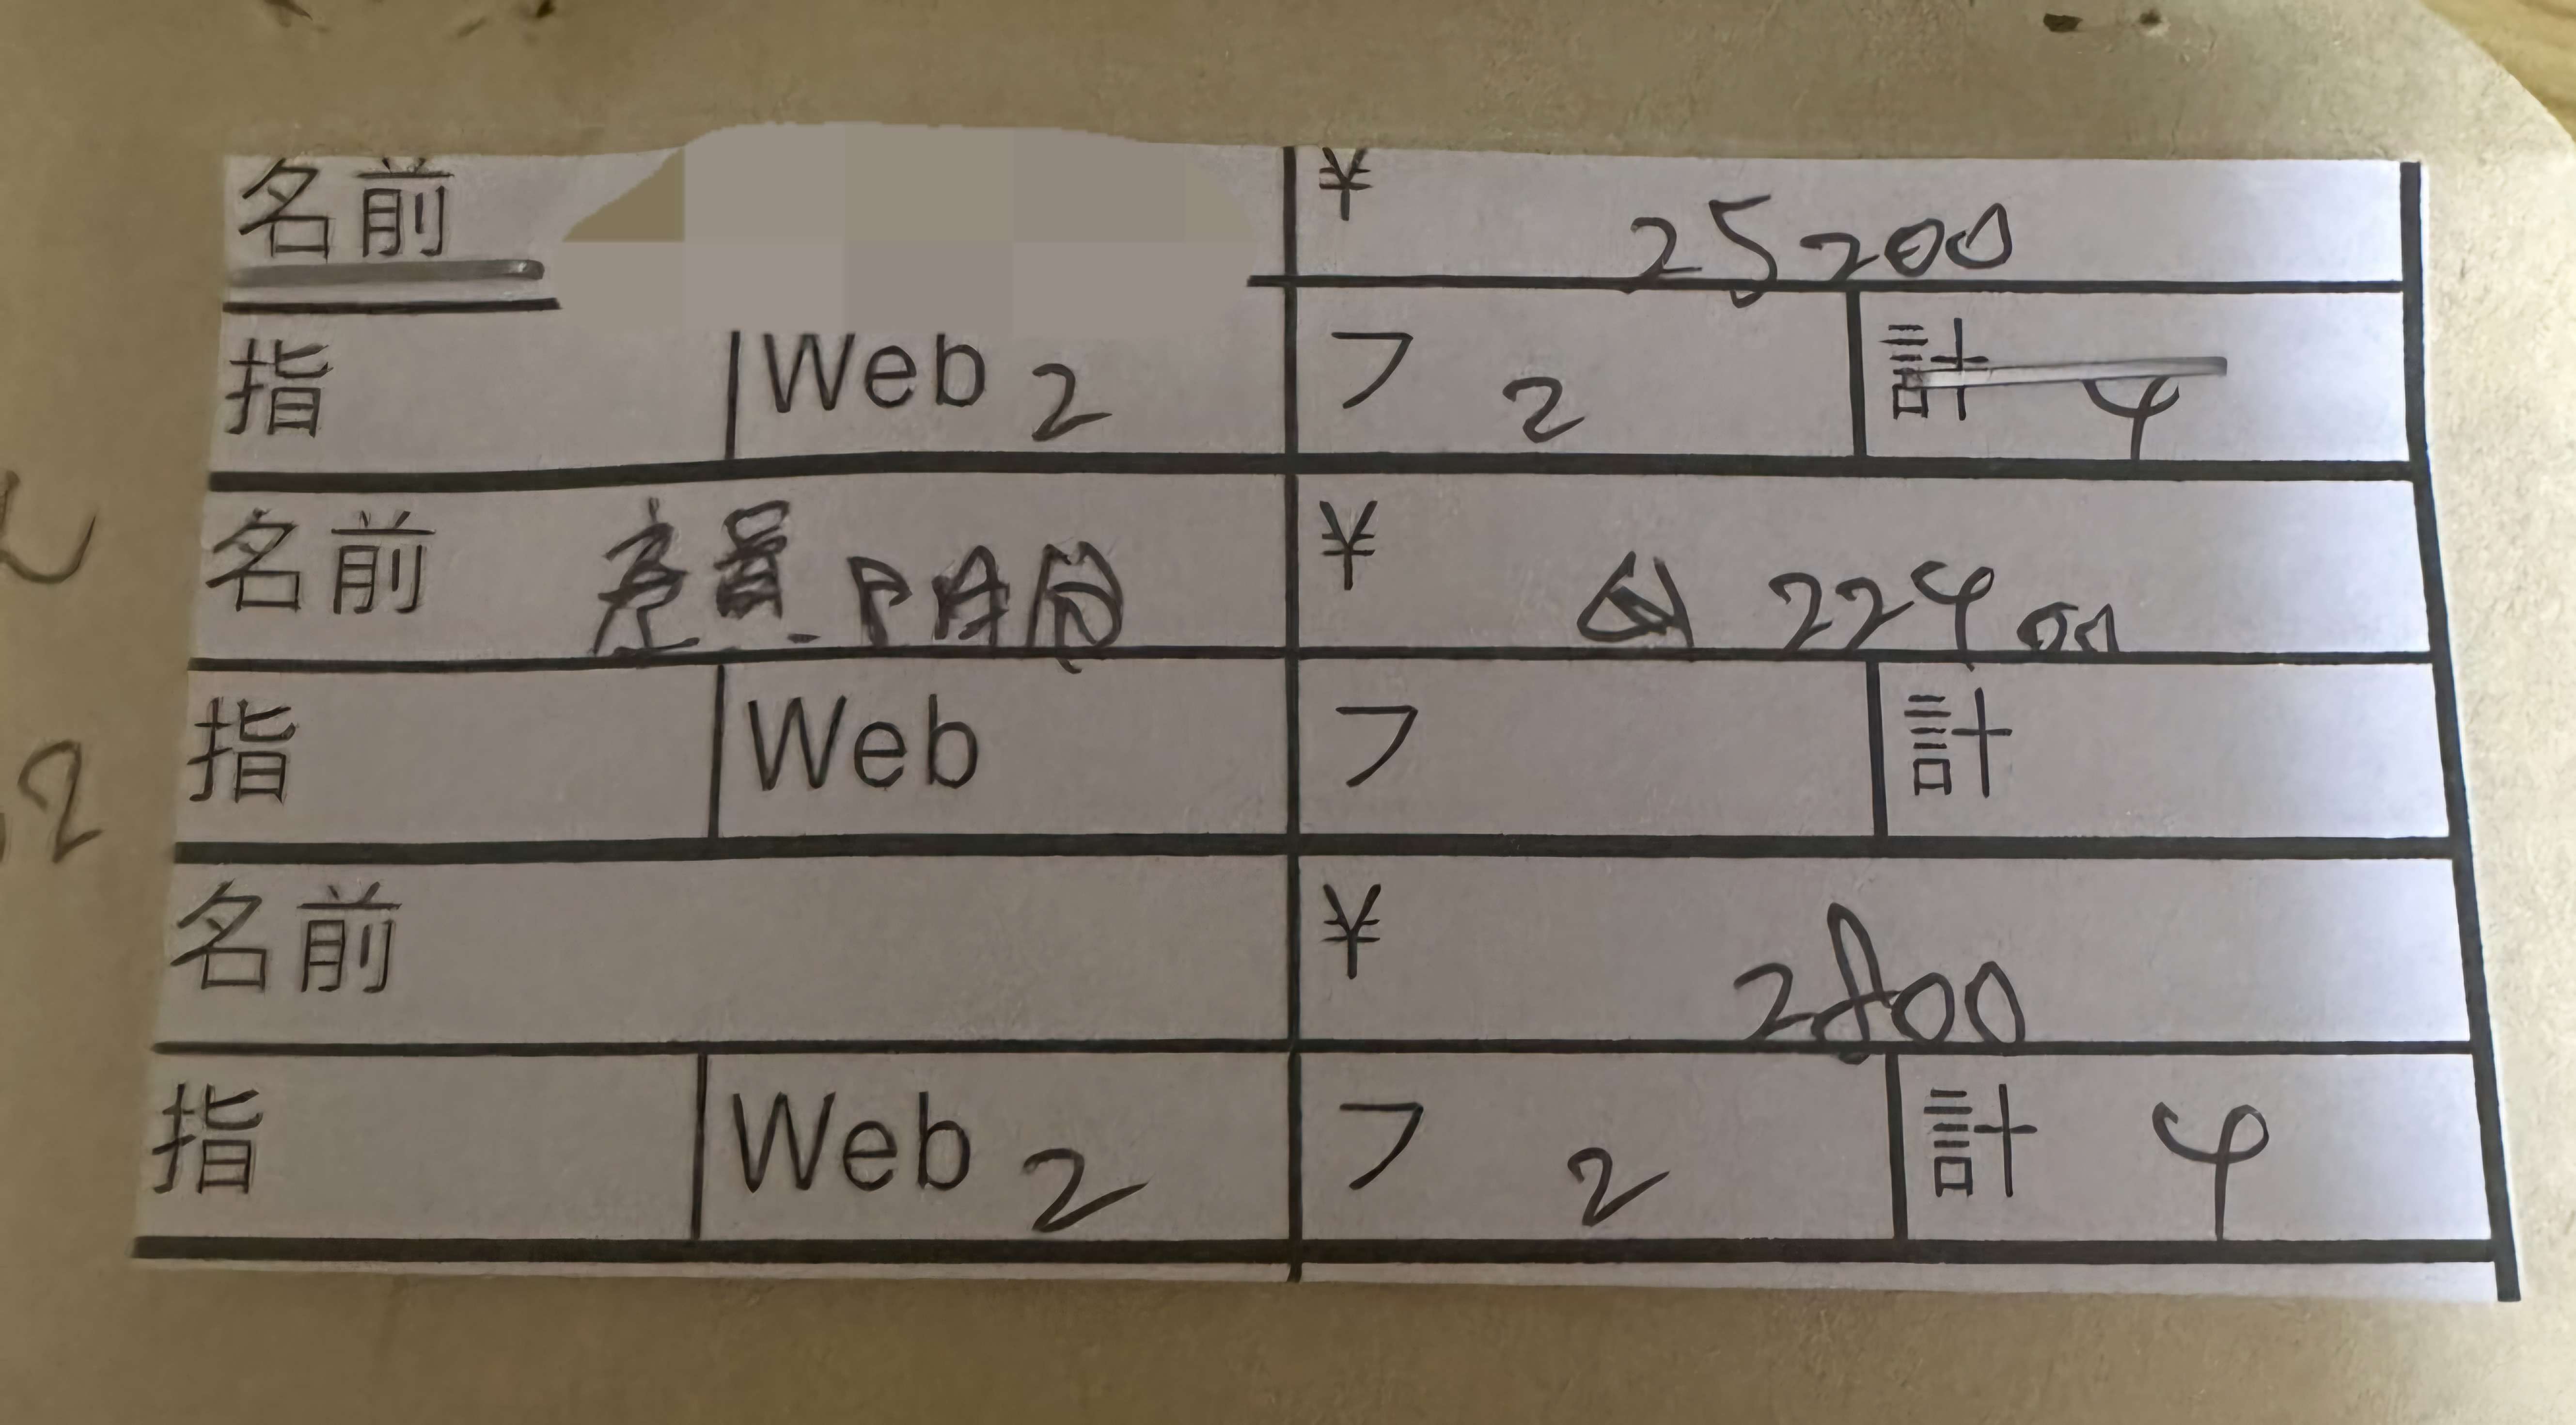 名前 ¥ 25200
指 Web 2 フ 2 計 4
名前 ¥ 22400
指 Web フ 計
名前 ¥ 2800
指 Web 2 フ 2 計 4
2